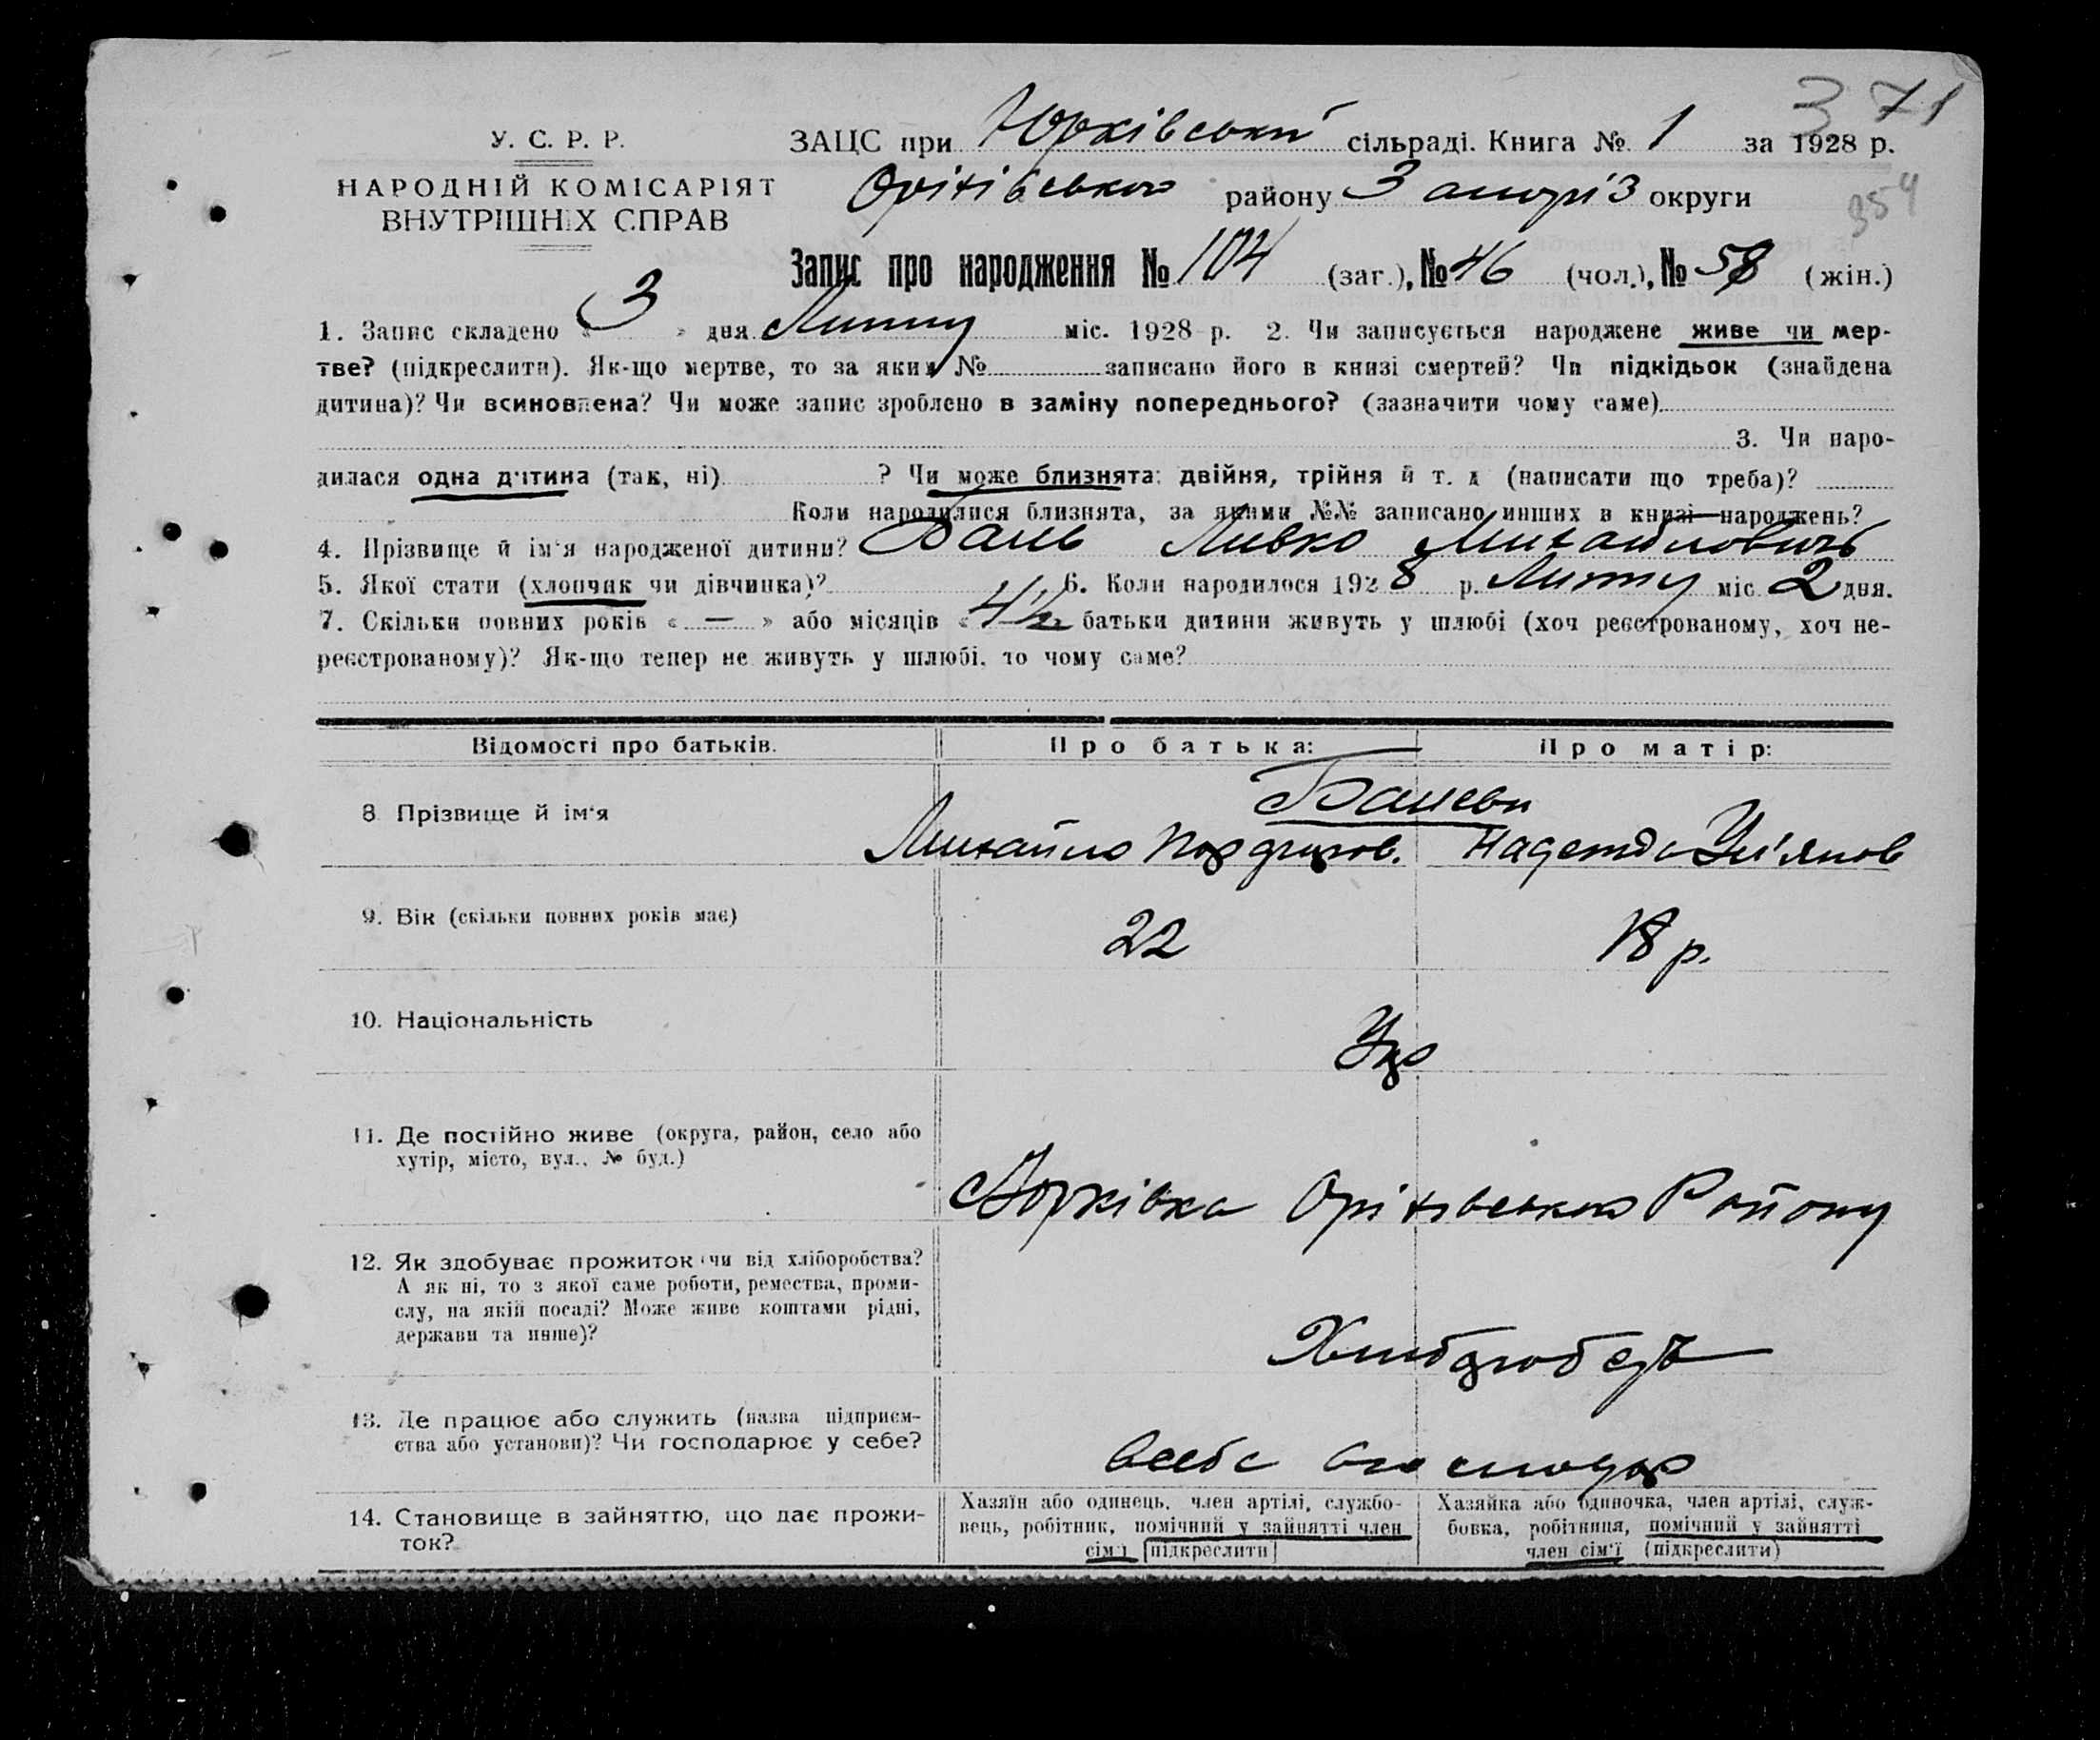 371
У. С. Р. Р.
ЗАЦС при Юрківській сільраді. Книга № 1 за 1928 р.
НАРОДНІЙ КОМІСАРІЯТ
ВНУТРІШНІХ СПРАВ
Оріхівського району Запоріз округи
354
Запис про народження № 104 (заг.), № 46 (чол.), № 58 (жін.)
1. Запис складено « 3 » дня Липну міс. 1928 р. 2. Чи записується народжене живе чи мер-
тве? (підкреслити). Як-що мертве, то за яким № записано його в книзі смертей? Чи підкідьок (знайдена
дитина)? Чи всиновлена? Чи може запис зроблено в заміну попереднього? (зазначити чому саме)
3. Чи наро-
дилася одна дитина (так, ні) ? Чи може близнята: двійня, трійня й т. д. (написати що треба)?
Коли народилися близнята, за якими №№ записано инших в книзі народжень?
4. Прізвище й ім'я народженої дитини? Баль Левко Михайлович
5. Якої стати (хлопчик чи дівчинка)? 6. Коли народилося 1928 р. Липну міс. 2 дня.
7. Скільки повних років « — » або місяців « 4½ батьки дитини живуть у шлюбі (хоч реєстрованому, хоч не-
реєстрованому)? Як-що тепер не живуть у шлюбі, то чому саме?
Відомості про батьків. Про батька: Про матір:
8. Прізвище й ім'я
Михайло Надежда
9. Вік (скільки повних років має) 22 18 р.
10. Національність Укр
11. Де постійно живе (округа, район, село або
хутір, місто, вул., № буд.)
Юрківка Оріхівського Району
12. Як здобуває прожиток чи від хліборобства?
А як ні, то з якої саме роботи, ремества, проми-
слу, на якій посаді? Може живе коштами рідні,
держави та инше)?
13. Де працює або служить (назва підприєм-
ства або установи)? Чи господарює у себе?
14. Становище в зайняттю, що дає прожи-
ток?
Хазяїн або одинець, член артілі, службо-
вець, робітник, помічний у зайнятті член
сім'ї (підкреслити)
Хазяйка або одиночка, член артілі, служ-
бовка, робітниця, помічний у зайнятті
член сім'ї (підкреслити)